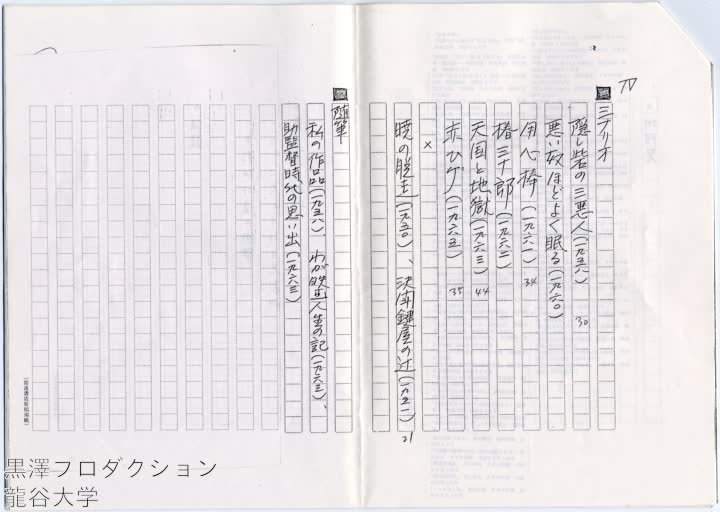 IV
■シナリオ
隠し砦の三悪人(一九五八) 30
悪い奴ほどよく眠る(一九六〇)
用心棒(一九六一) 34
椿三十郎(一九六二)
天国と地獄(一九六三) 44
赤ひげ(一九六五) 35
×
暁の脱走(一九五〇)、決闘鍵屋の辻(一九五一) 21
■随筆
私の作品(一九五八)、わが映画人生の記(一九六三)、
助監督時代の思い出(一九六三)
(岩波書店原稿用紙)
黒澤プロダクション
龍谷大学